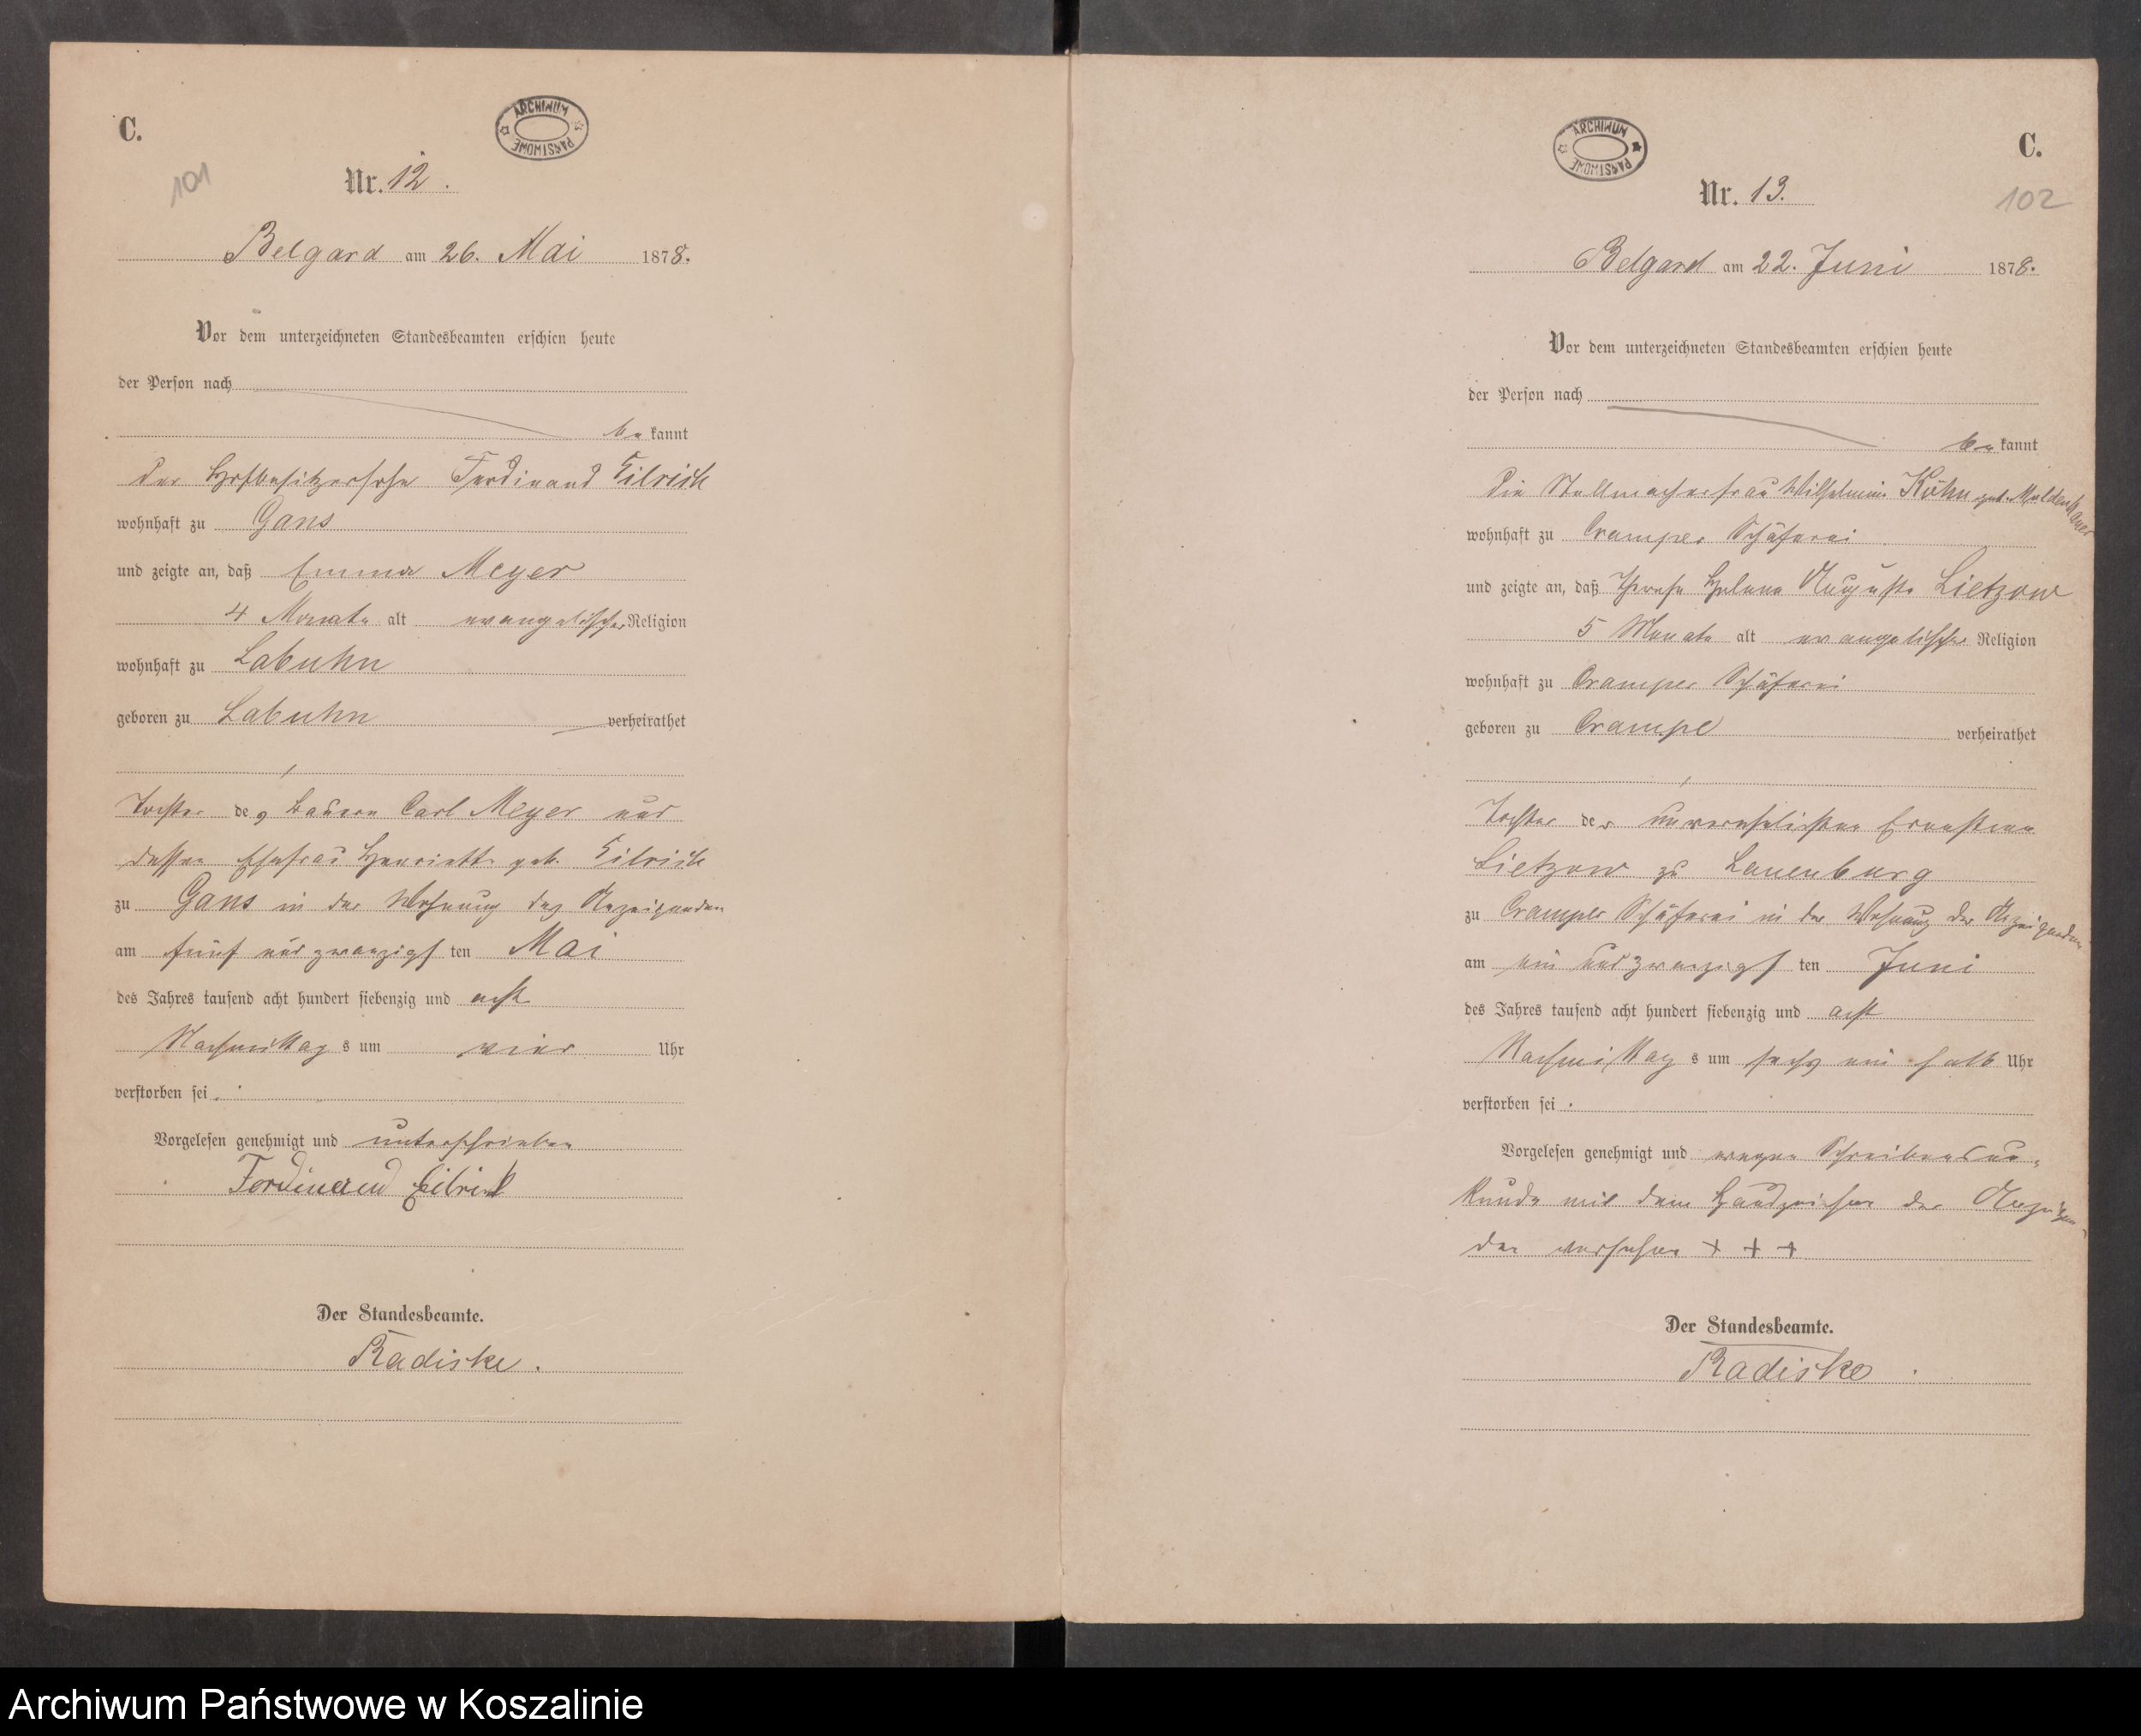 C.
ARCHIWUM PAŃSTWOWE
101
Nr. 12.
Belgard am 26. Mai 1878.
Vor dem unterzeichneten Standesbeamten erschien heute
der Person nach
be kannt
der Hofbesitzersohn Ferdinand Eilrich
wohnhaft zu Gans
und zeigte an, daß Emma Meyer
4 Monate alt evangelischer Religion
wohnhaft zu Labuhn
geboren zu Labuhn verheirathet
Tochter des Bauern Carl Meyer und
dessen Ehefrau Henriette geb. Eilrich
zu Gans in der Wohnung des Anzeigenden
am fünf und zwanzigs ten Mai
des Jahres tausend acht hundert siebenzig und acht
Nachmittag s um vier Uhr
verstorben sei.
Vorgelesen genehmigt und unterschrieben
Ferdinand Eilrich
Der Standesbeamte.
Radiske.
C.
ARCHIWUM PAŃSTWOWE
102
Nr. 13.
Belgard am 22. Juni 1878.
Vor dem unterzeichneten Standesbeamten erschien heute
der Person nach
be kannt
die Stellmacherfrau Wilhelmine Köhn geb. Moldenhauer
wohnhaft zu Cramper Schäferei
und zeigte an, daß Therese Helene Auguste Lietzow
5 Monate alt evangelischer Religion
wohnhaft zu Cramper Schäferei
geboren zu Crampe verheirathet
Tochter der unverehelichten Ernestine
Lietzow zu Lauenburg
zu Cramper Schäferei in der Wohnung der Anzeigenden
am ein und zwanzigs ten Juni
des Jahres tausend acht hundert siebenzig und acht
Nachmittag s um sechs ein halb Uhr
verstorben sei.
Vorgelesen genehmigt und wegen Schreibensun-
kunde mit dem Handzeichen der Anzeigen-
den versehen + + +
Der Standesbeamte.
Radiske.
Archiwum Państwowe w Koszalinie